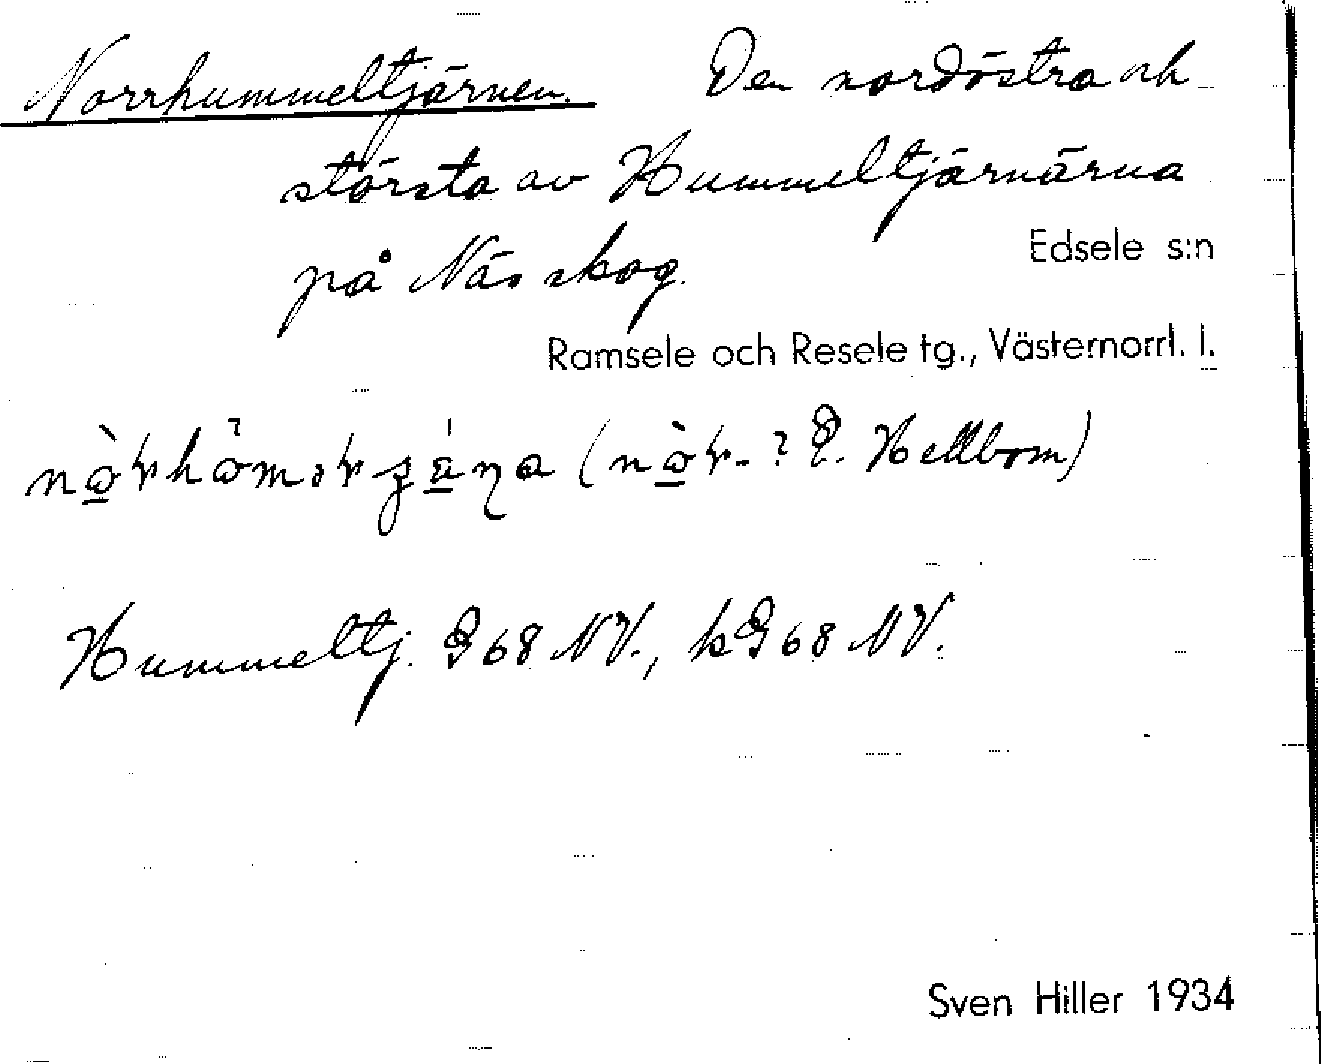 Norrhummeltjärnen. Den nordöstra och
största av Hummeltjärnärna
på Näs skog.
Edsele s:n
Ramsele och Resele tg., Västernorrl. l.
(nòr-? E. Hellbom)
Hummeltj. G 68 NV., kG 68 NV.
Sven Hiller 1934